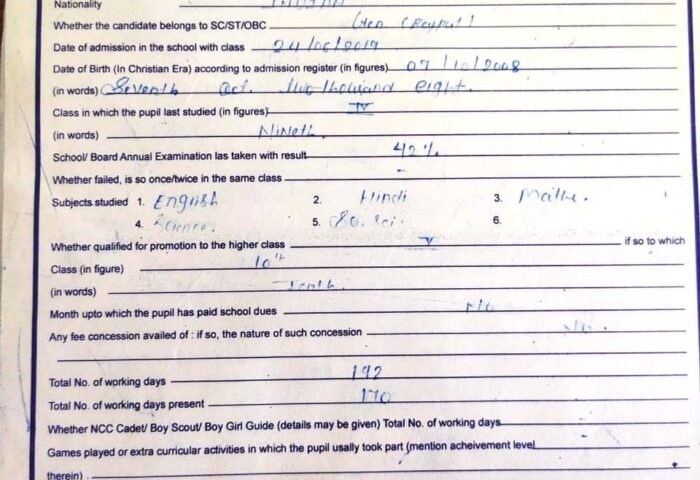 Nationality INDIAN
Whether the candidate belongs to SC/ST/OBC Gen (Rajput)
Date of admission in the school with class 24/06/2019
Date of Birth (In Christian Era) according to admission register (in figures) 07/10/2008
(in words) Seventh Oct. two thousand eight.
Class in which the pupil last studied (in figures) IV
(in words) Nineth.
School/ Board Annual Examination las taken with result 42%
Whether failed, is so once/twice in the same class -
Subjects studied 1. English 2. Hindi 3. Maths.
4. Science. 5. So. Sci. 6.
Whether qualified for promotion to the higher class V if so to which
Class (in figure) 10th
(in words) Tenth.
Month upto which the pupil has paid school dues No
Any fee concession availed of : if so, the nature of such concession No.
Total No. of working days 192
Total No. of working days present 170
Whether NCC Cadet/ Boy Scout/ Boy Girl Guide (details may be given) Total No. of working days -
Games played or extra curricular activities in which the pupil usally took part (mention acheivement level
therein) .